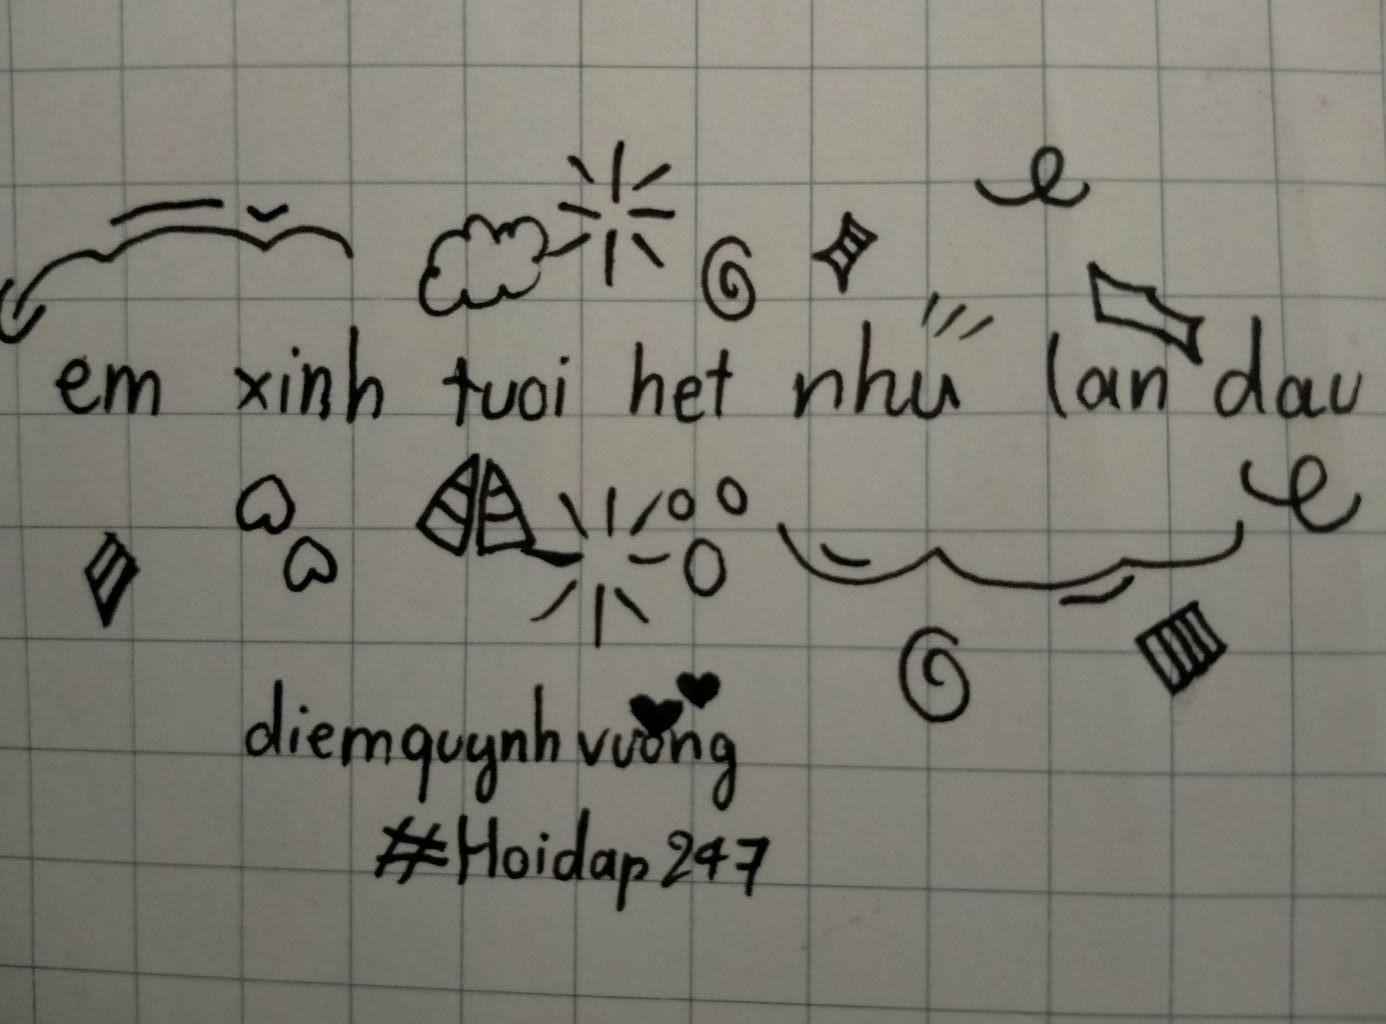 em xinh tuoi het như lan dau
diemquynhvuong
#Hoidap247